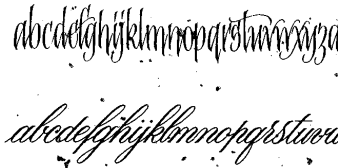 abcdefghijklmnopqrstuvwxyza
abcdefghijklmnopqrstuvw